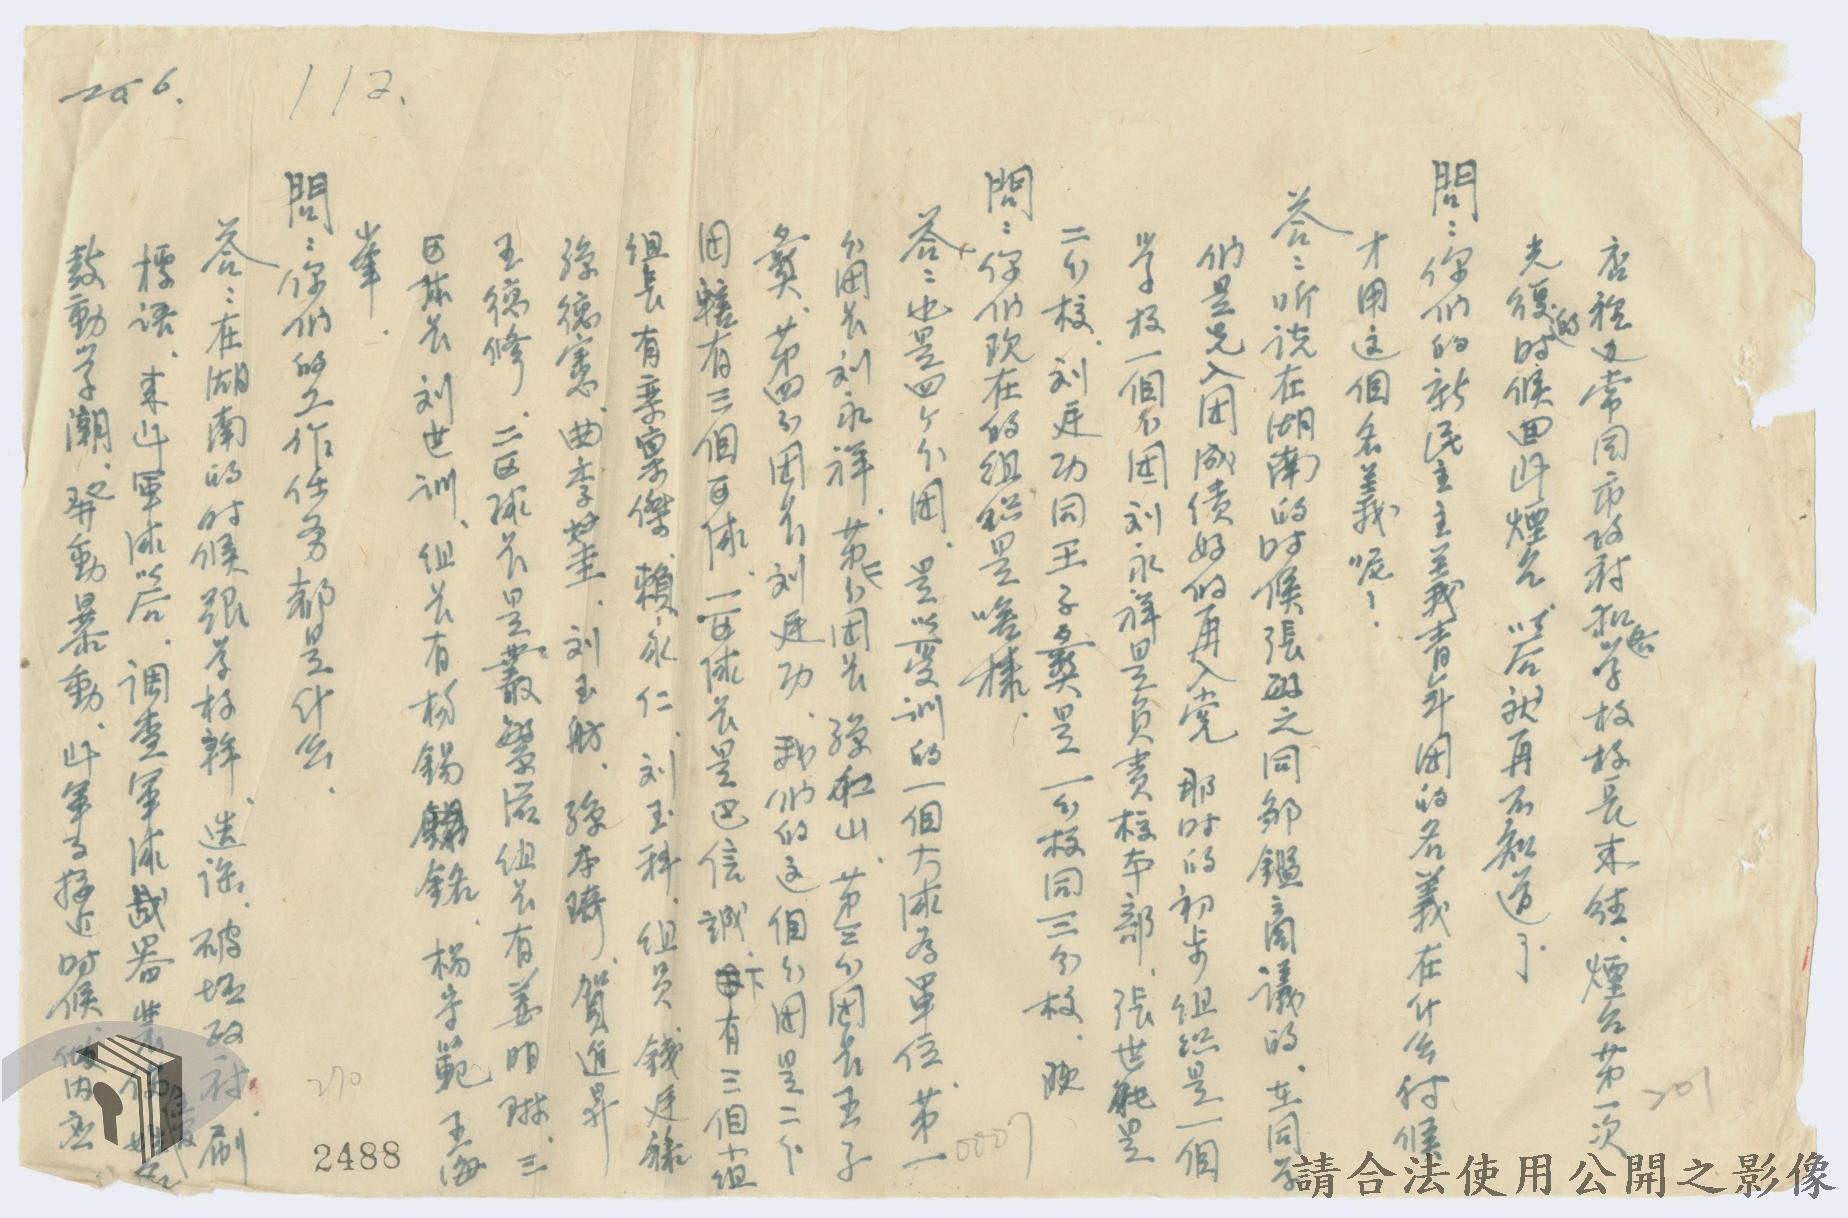 112.
256.
店裡边常同市政府和学校校長来往、煙台第一次
光復的时候回过煙台、以后就再不知道了.
問：你们的新民主主義青年团的名義在什么时候
才用这個名義呢！
答：听說在湖南的时候張敏之同邹鑑商議的、在同学
们是先入团成績好的再入党 那时的初步組織是一個
学校一個分团刘永祥是負責校本部、張世能是
二分校、刘廷功同王子彝是一分校同三分校、
問：你们現在的組织是啥樣.
答：也是四个分团、是以受训的一個大隊为單位、第一
分团长刘永祥、第二分团长 孫 山、第三分团长王子
彝、第四分团长刘廷功、我们的这個分团是二个
团轄有三個区隊、一区隊长是 信誠、下有三個小組
組長有李 傑、賴永仁、刘玉科、組员 錢廷
孫德憲、曲 、刘玉 、孫本琦、賀進昇
王德修、二区隊长是叢繁滋組长有姜明琳、三
区隊长刘世训、組长有杨錫銘、楊守範 王海
華.
問：你们的工作任务都是什么.
答：在湖南的时候跟学校幹、造謠、破坏政府、刷
標語、来此軍隊以后、調查軍隊武器裝備
鼓動学潮、発動暴動、
201
0007
270
2488
請合法使用公開之影像